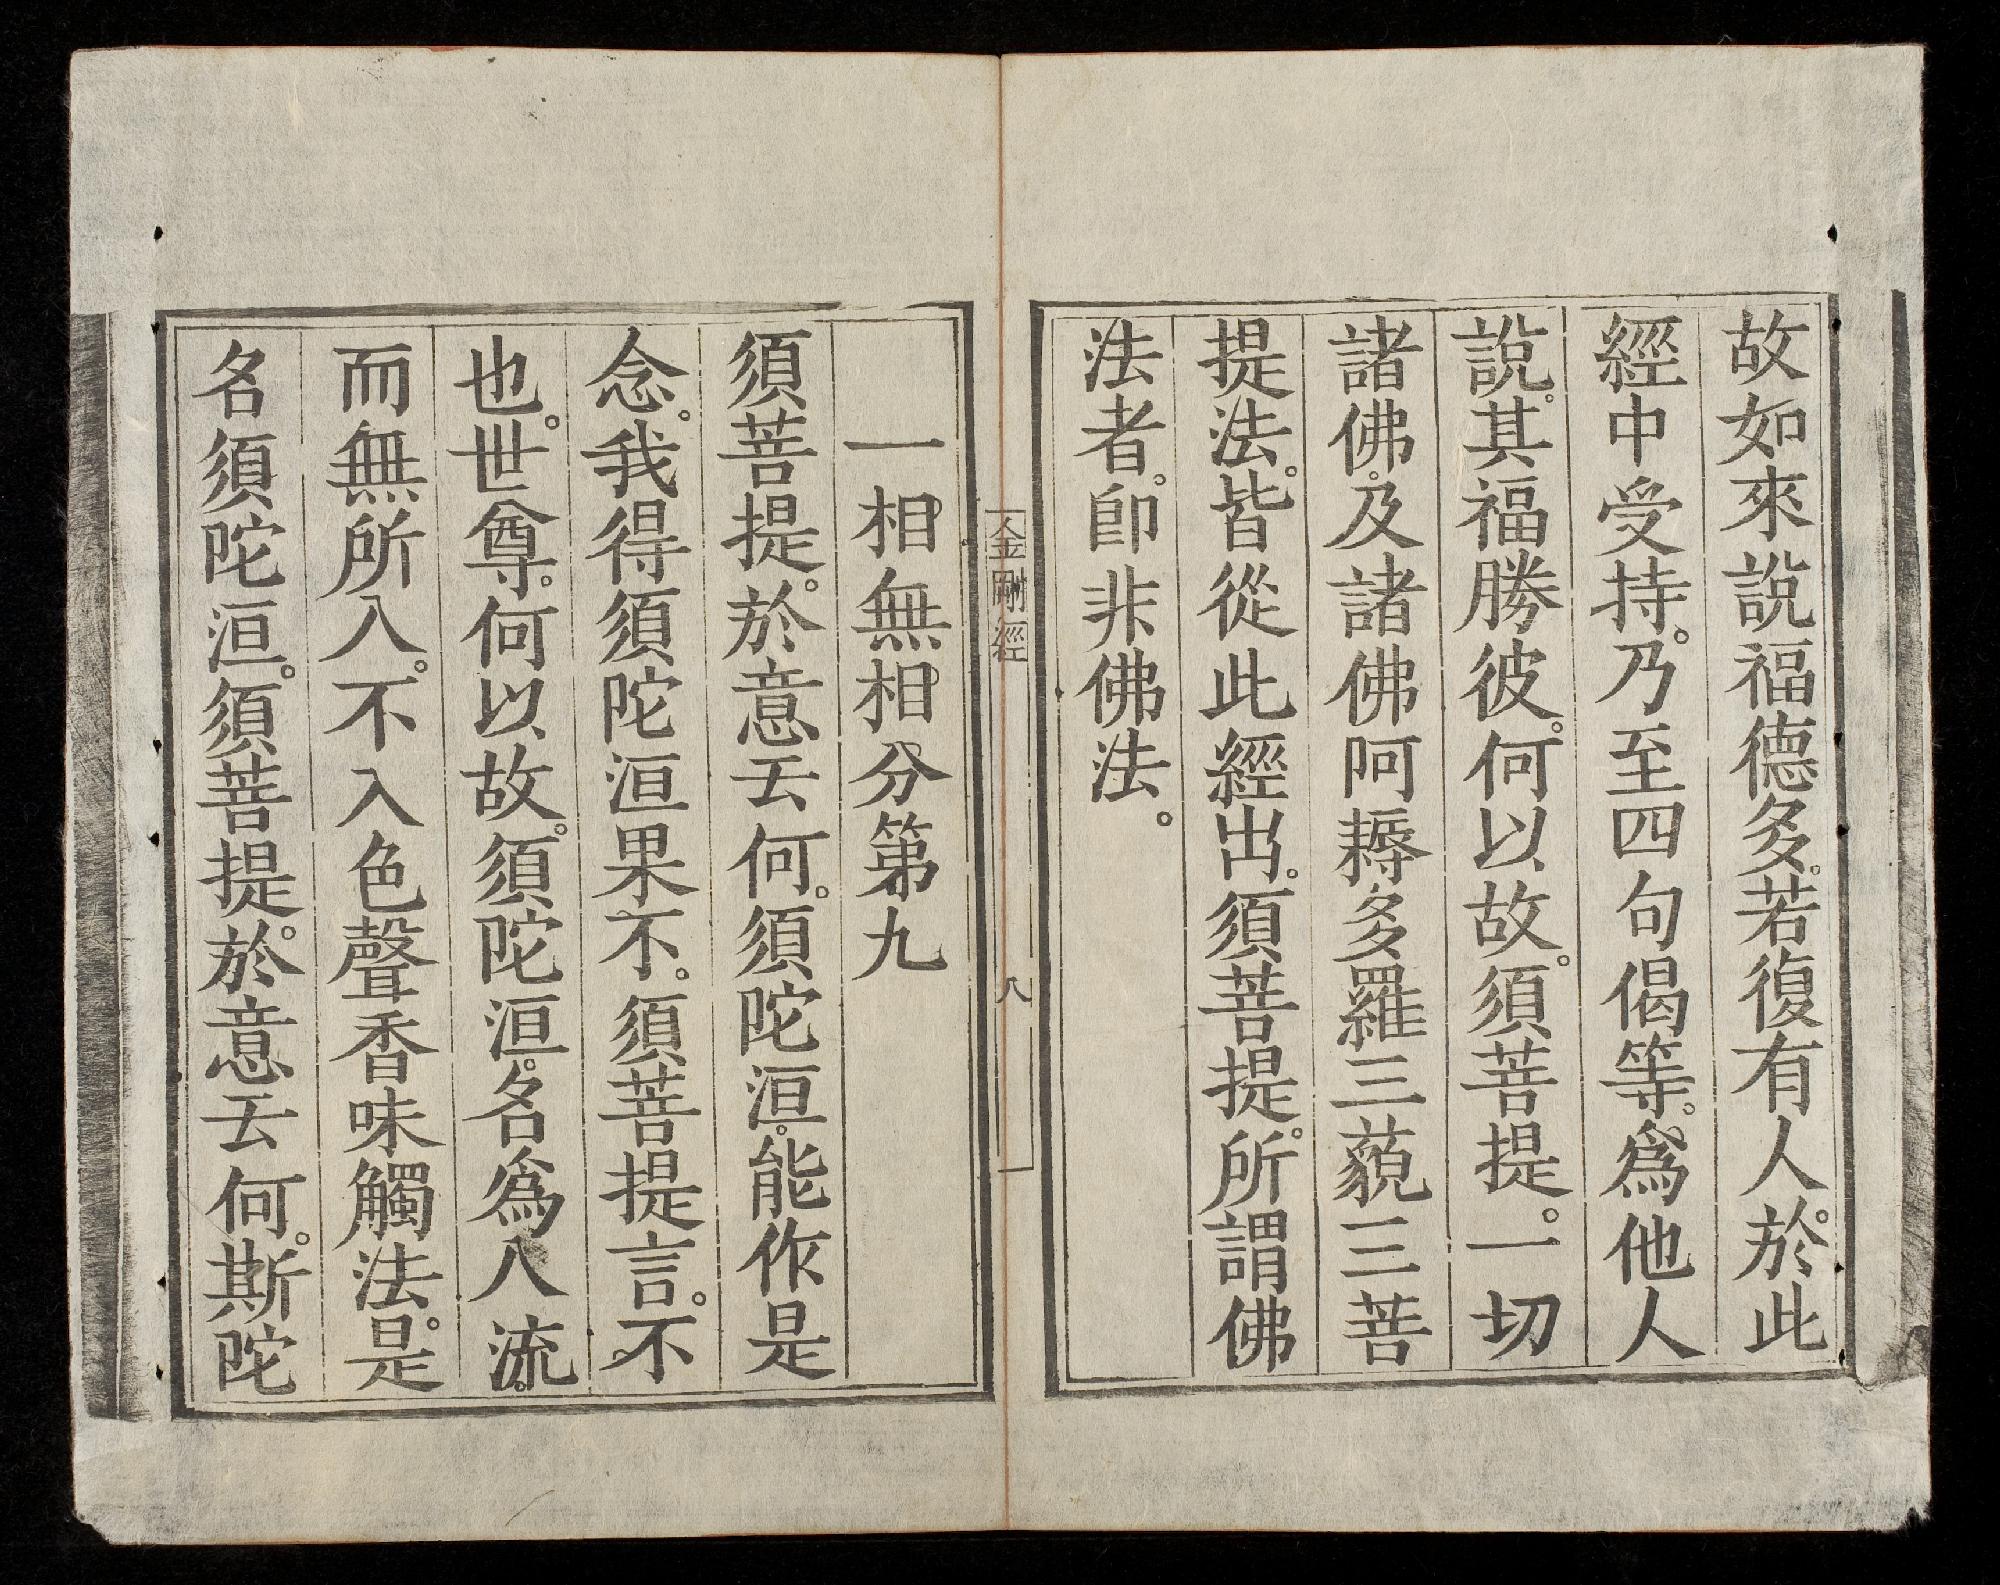 故如來說福德多。若復有人。於此
經中受持。乃至四句偈等。爲他人
說。其福勝彼。何以故。須菩提。一切
諸佛。及諸佛阿耨多羅三藐三菩
提法。皆從此經出。須菩提。所謂佛
法者。卽非佛法。
金剛經
八
一相無相分第九
須菩提。於意云何。須陀洹。能作是
念。我得須陀洹果不。須菩提言。不
也。世尊。何以故。須陀洹。名爲入流。
而無所入。不入色聲香味觸法。是
名須陀洹。須菩提。於意云何。斯陀